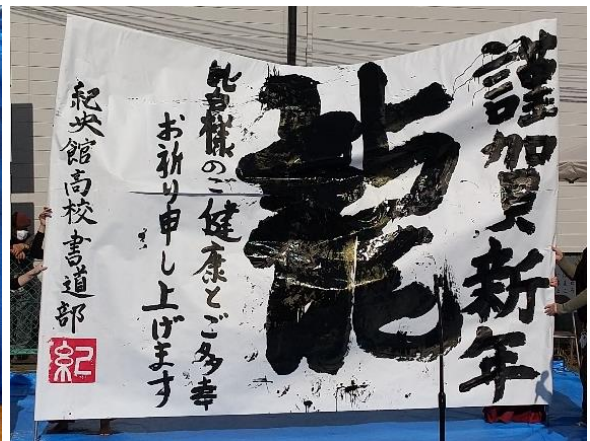 謹賀新年
龍
皆様のご健康とご多幸
お祈り申し上げます
紀央館高校書道部
紀